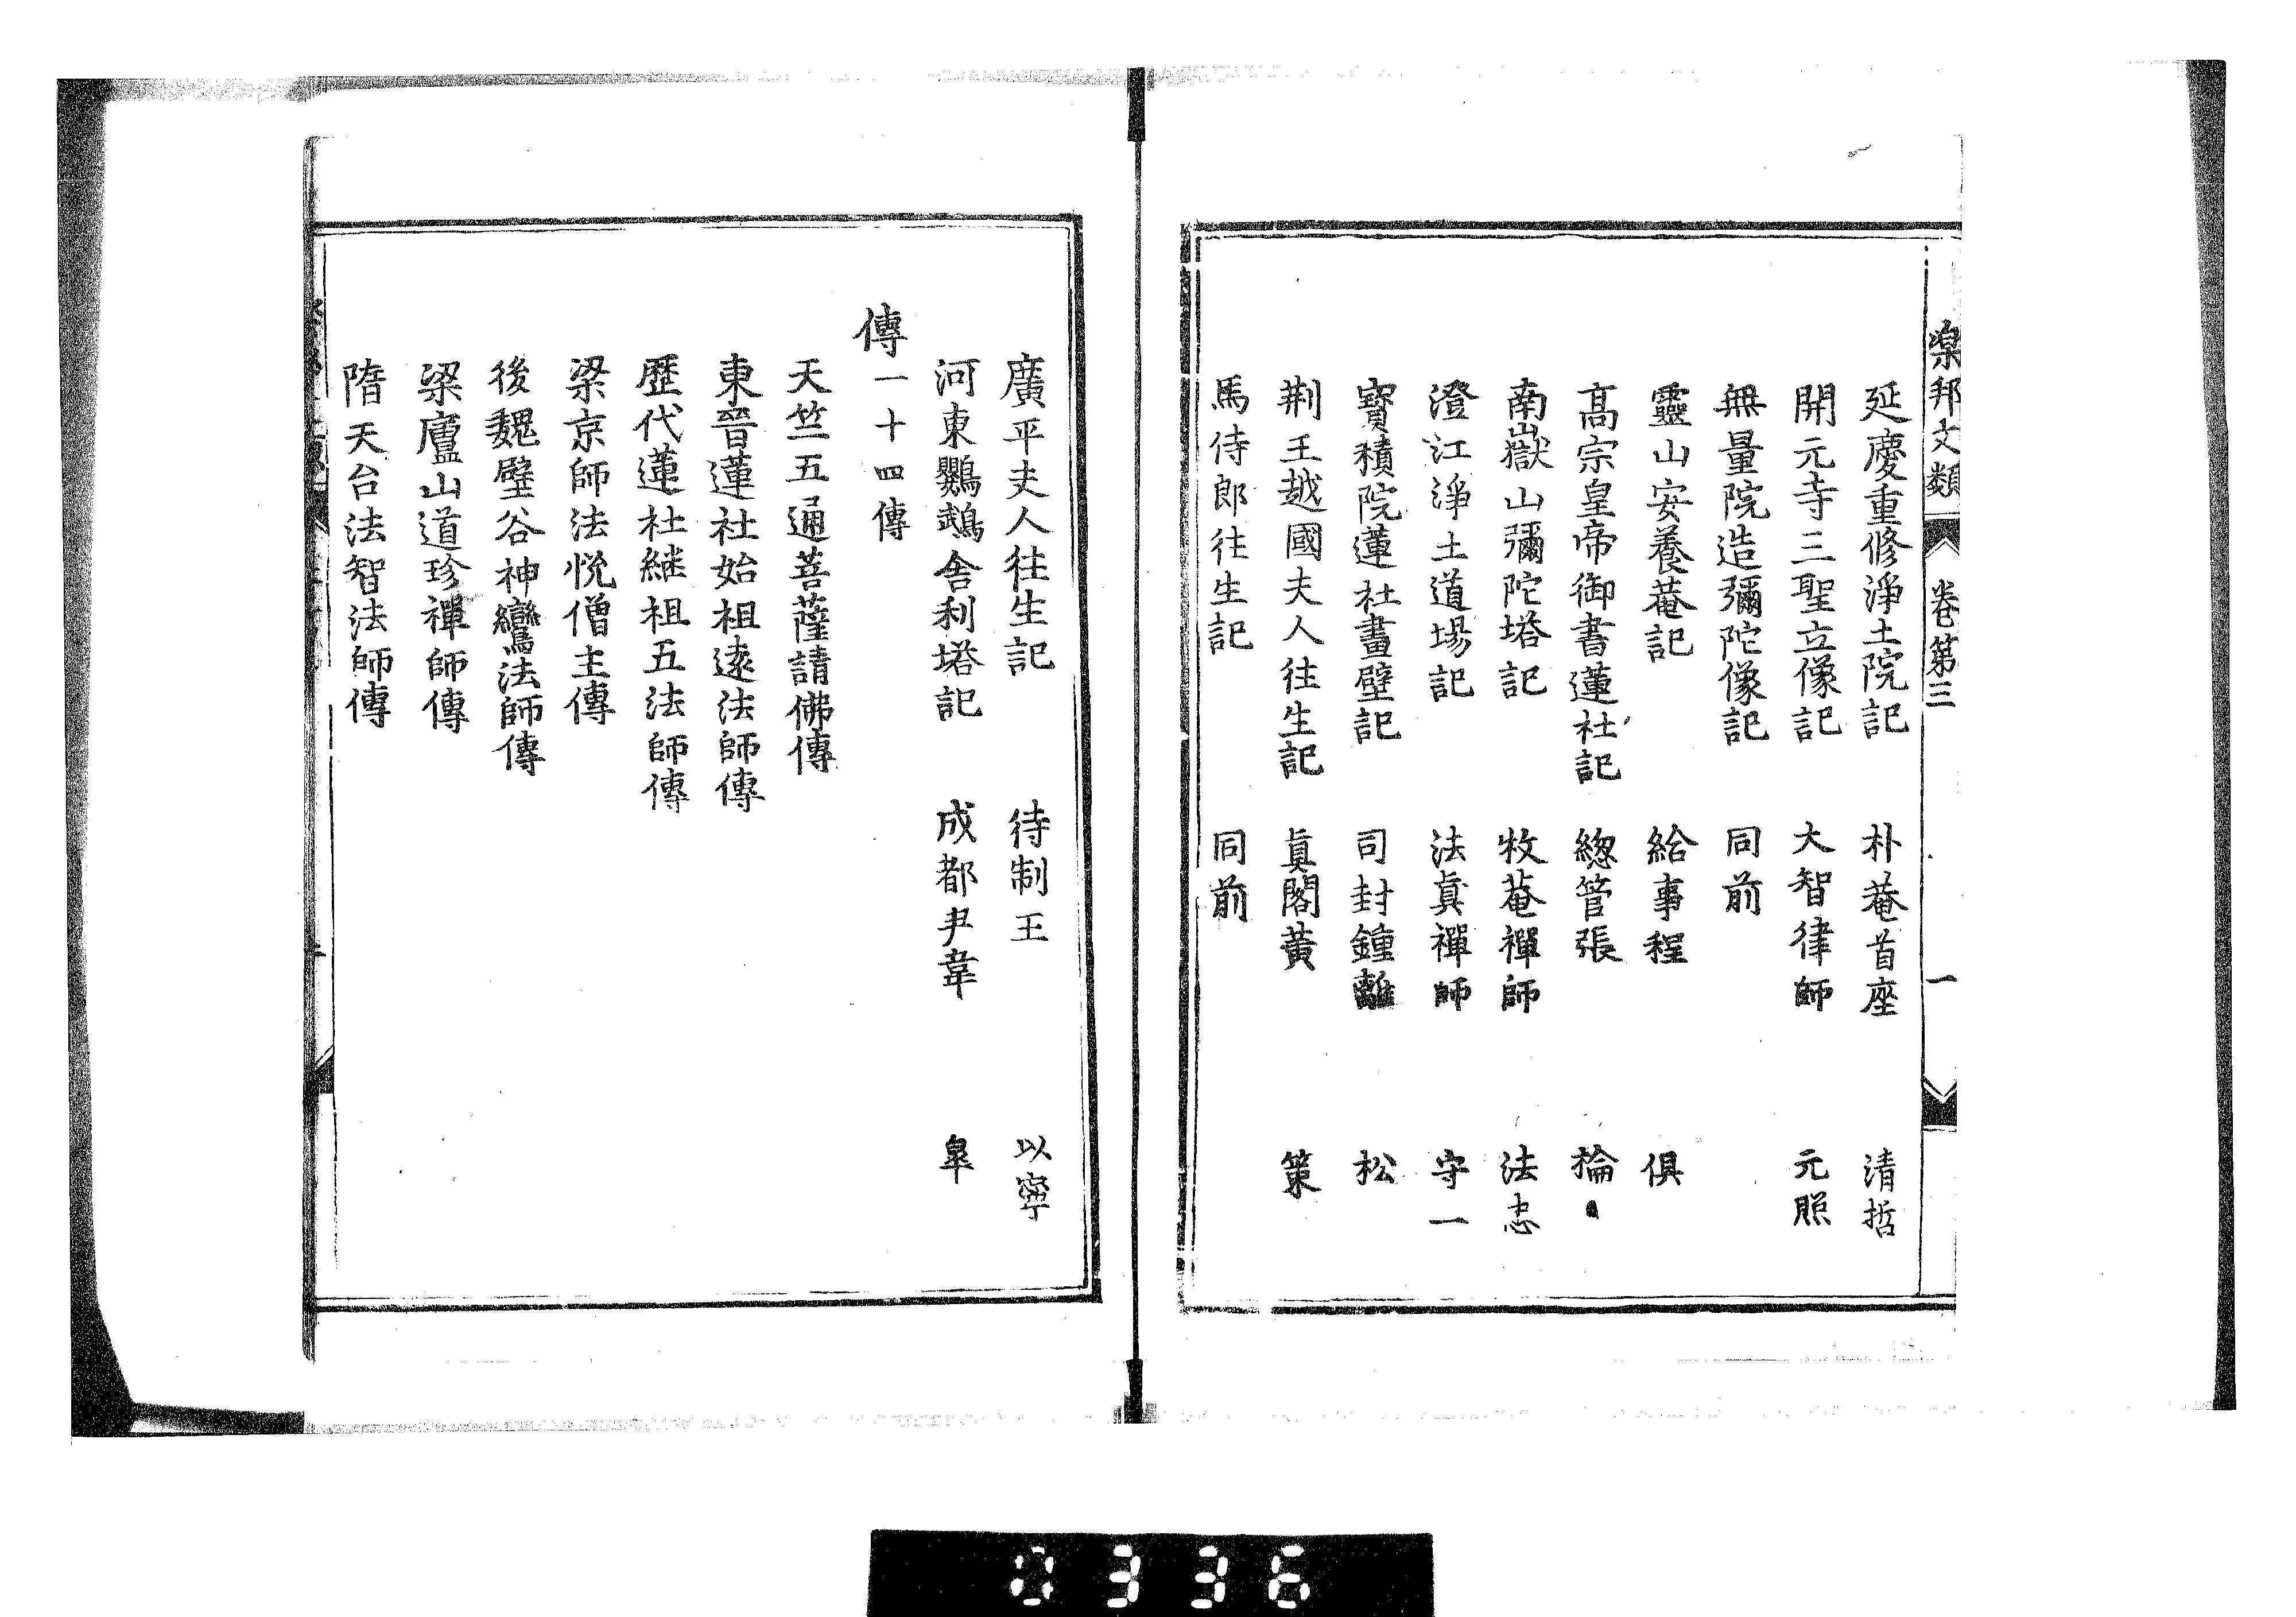 樂邦文類 卷第三 一
延慶重修淨土院記 朴菴首座 清哲
開元寺三聖立像記 大智律師 元照
無量院造彌陀像記 同前
靈山安養菴記 給事程 俱
高宗皇帝御書蓮社記 緫管張 掄
南嶽山彌陀塔記 牧菴禪師 法忠
澄江淨土道場記 法眞禪師 守一
寶積院蓮社畫壁記 司封鍾離 松
荆王越國夫人往生記 眞閣黃 策
馬侍郎往生記 同前
廣平夫人往生記 待制王 以寧
河東鸚鵡舍利塔記 成都尹韋 皐
傳一十四傳
天竺五通菩薩請佛傳
東晉蓮社始祖遠法師傳
歷代蓮社継祖五法師傳
梁京師法悅僧主傳
後魏壁谷神鸞法師傳
梁廬山道珍禪師傳
隋天台法智法師傳
0336